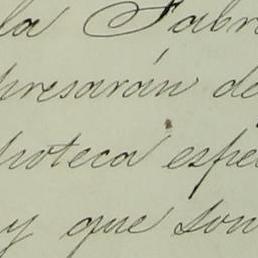 la Fabri
presarán de
poteca espe
y que son